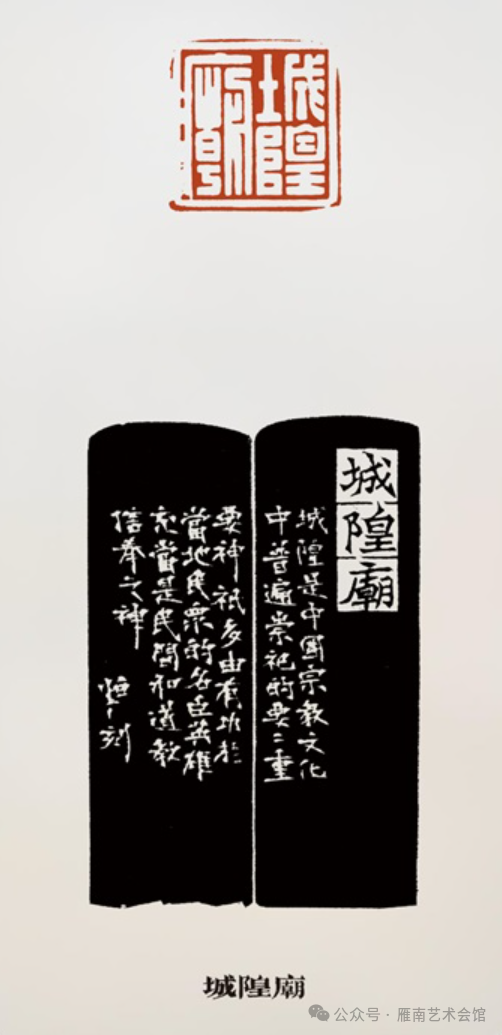 城隍
廟
城隍廟
城隍是中國宗教文化
中普遍崇祀的要重
要神祇多由有功於
當地民眾的名臣英雄
充當是民間和道教
信奉之神
刻
城隍廟
公众号 · 雁南艺术会馆